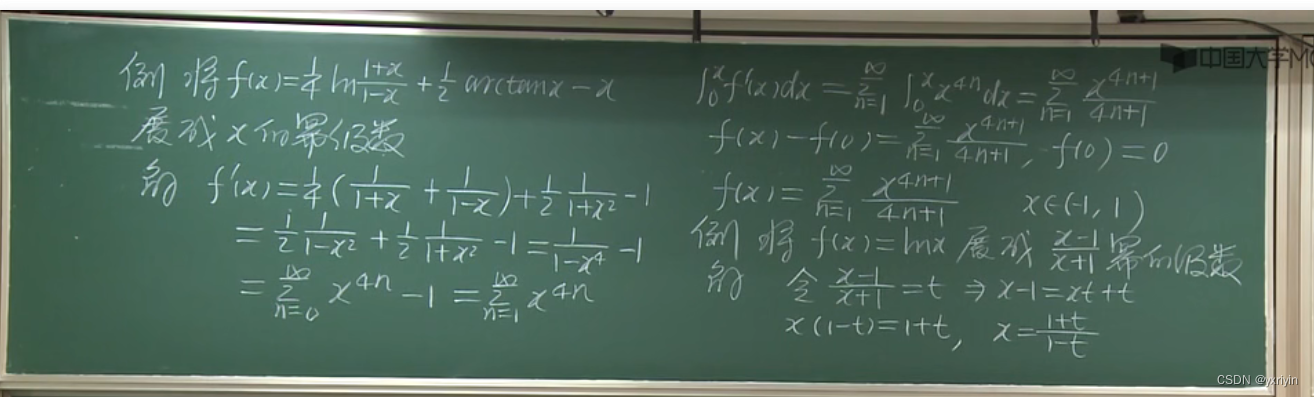 例 将 f(x)=1/4 ln (1+x)/(1-x) + 1/2 arctanx - x
展成 x 的幂级数
解 f'(x)=1/4(1/(1+x) + 1/(1-x))+1/2 1/(1+x²) -1
= 1/2 1/(1-x²) + 1/2 1/(1+x²) -1 = 1/(1-x⁴) -1
= ∑_{n=0}^{∞} x^{4n} -1 = ∑_{n=1}^{∞} x^{4n}
∫_0^x f'(x)dx = ∑_{n=1}^{∞} ∫_0^x x^{4n}dx = ∑_{n=1}^{∞} x^{4n+1}/(4n+1)
f(x)-f(0)=∑_{n=1}^{∞} x^{4n+1}/(4n+1), f(0)=0
f(x)=∑_{n=1}^{∞} x^{4n+1}/(4n+1) x∈(-1, 1)
例 将 f(x)=lnx 展成 (x-1)/(x+1) 幂的级数
解 令 (x-1)/(x+1)=t ⇒ x-1=xt+t
x(1-t)=1+t, x=(1+t)/(1-t)
中国大学MO
CSDN @yxriyin